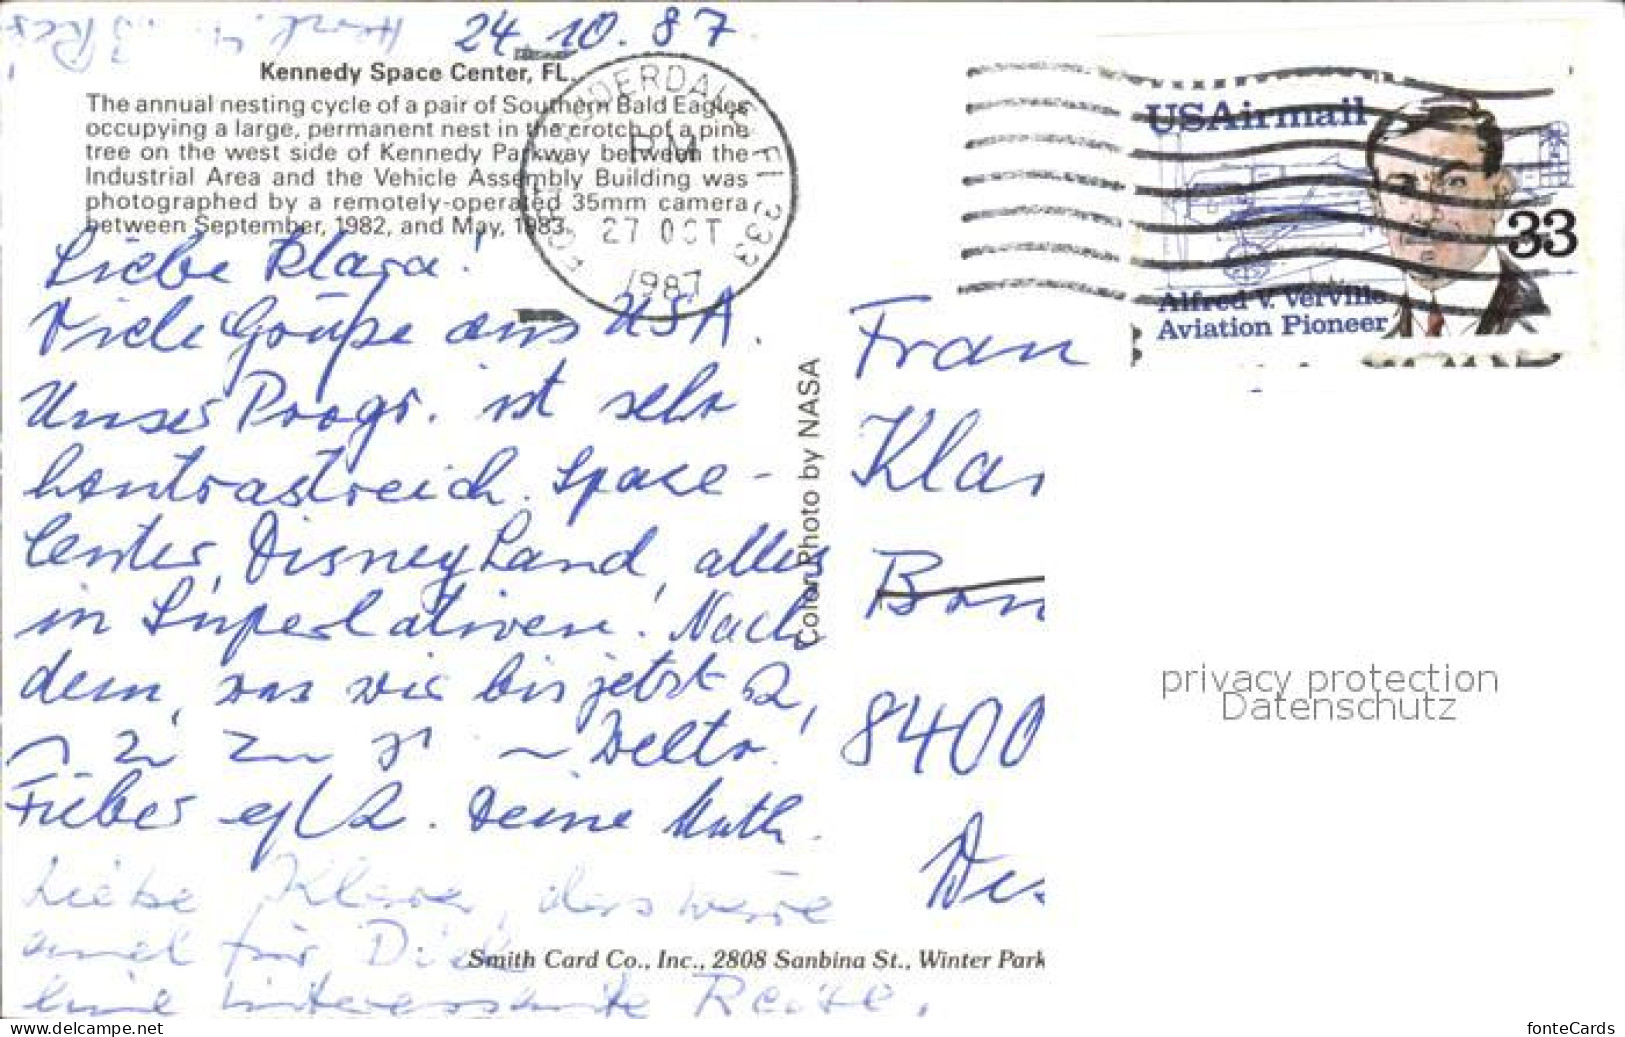 24.10.87
Kennedy Space Center, FL.
The annual nesting cycle of a pair of Southern Bald Eagles
occupying a large, permanent nest in the crotch of a pine
tree on the west side of Kennedy Parkway between the
Industrial Area and the Vehicle Assembly Building was
photographed by a remotely-operated 35mm camera
between September, 1982, and May, 1983.
PM
27 OCT
1987
USAirmail
33
Alfred V. Verville
Aviation Pioneer
Liebe Klara!
Viele Grüße aus USA.
Unser Progr. ist sehr
kontrastreich. Space-
Center, Disneyland, alles
in Superlativen! Nach
dem, was wir bis jetzt
Fieber Deine Ruth.
Liebe Klara, das wäre
mal für Dich
eine interessante Reise.
Color Photo by NASA
Frau
Klar
8400
Smith Card Co., Inc., 2808 Sanbina St., Winter Park
privacy protection
Datenschutz
www.delcampe.net
fonteCards